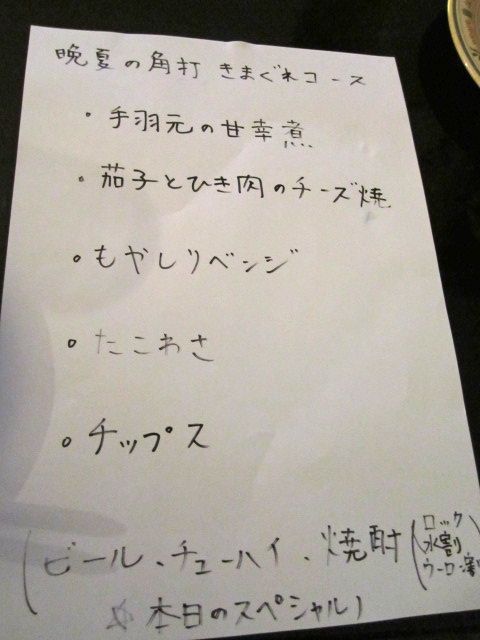 晩夏の角打 きまぐれコース
・手羽元の甘幸煮
・茄子とひき肉のチーズ焼
。もやしリベンジ
。たこわさ
。チップス
(ビール、チューハイ、焼酎(ロック
水割
ウーロン割
☆本日のスペシャル)